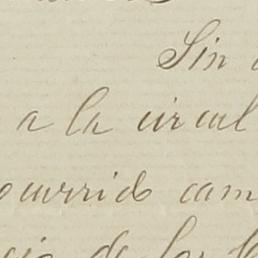 Sin
a la circul
ocurrido cam
de los